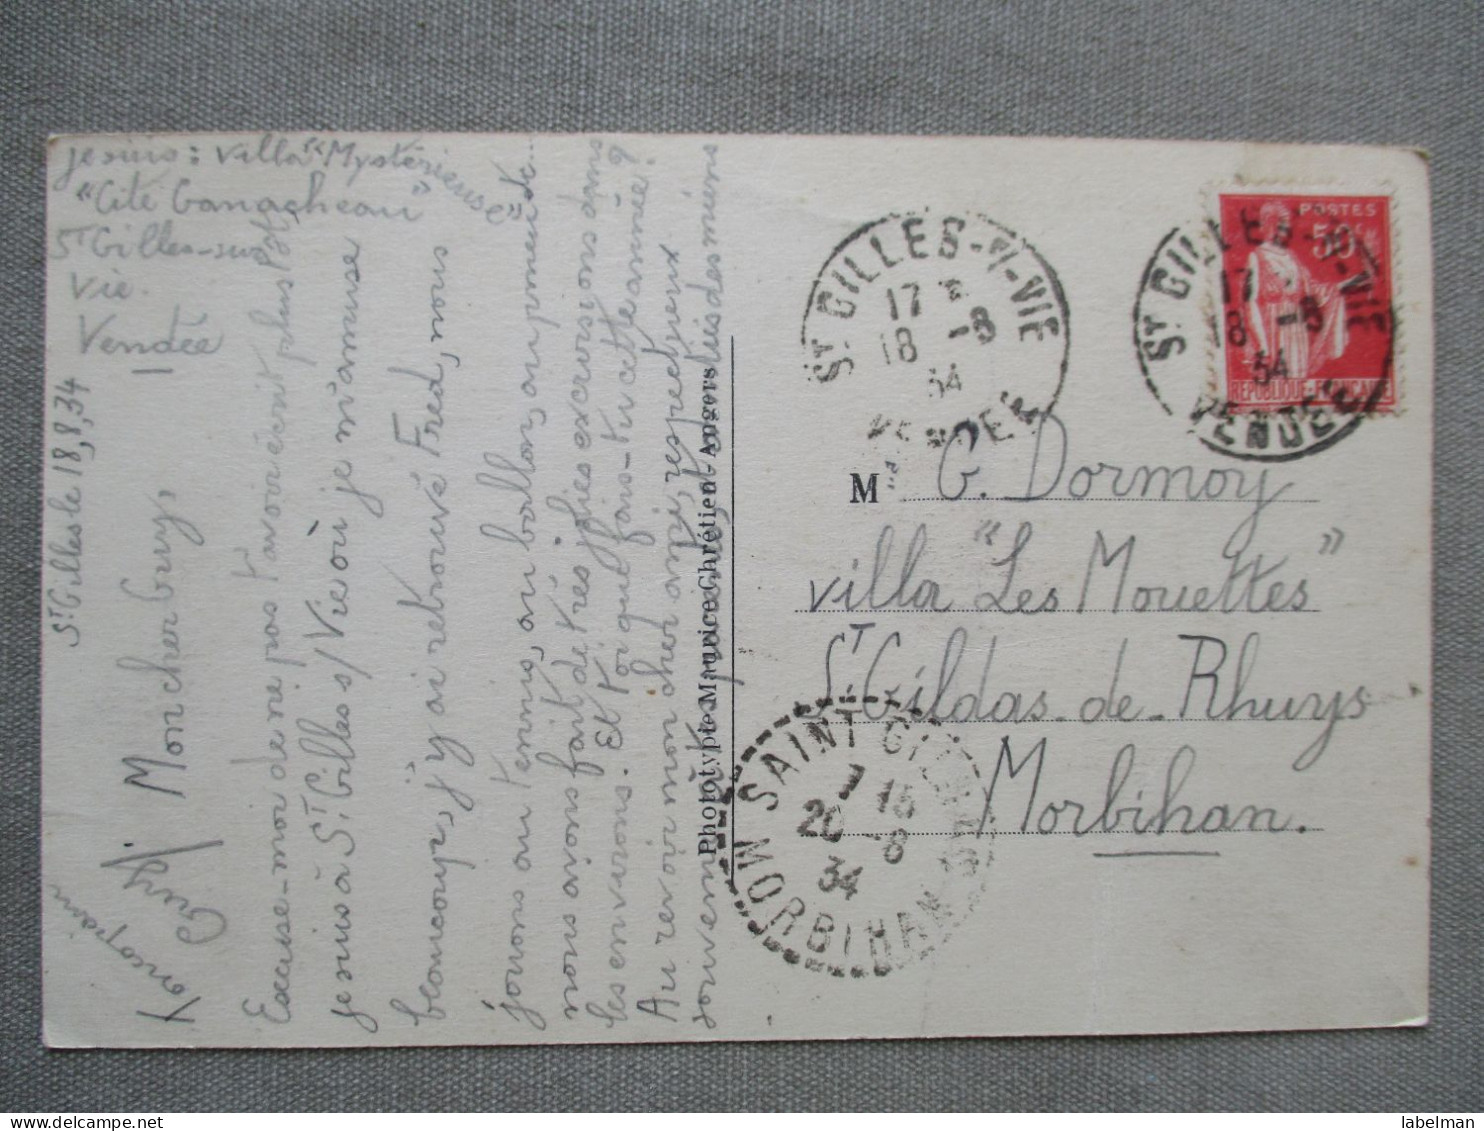 je suis : villa "Mystérieuse"
"Cité Ganacheau"
St Gilles-sur
Vie.
Vendée
St Gilles le 18,8,34
Mon cher Guy,
Excuse-moi de ne pas t'avoir écrit plus tôt,
je suis à St Gilles s/ Vie où je m'amuse
beaucoup, j'y ai retrouvé Fred, nous
jouons au tennis, au ballon,
nous avons fait de très jolies excursions dans
les environs. Et toi que fais-tu cette année?
Au revoir mon cher ami, respectueux
souvenirs à tes parents, de des miens
ton copain
Guy
Phototypie Maurice Chrétien - Angers
ST GILLES-S-VIE
17
18 -8
34
VENDEE
ST GILLES-S-VIE
17
18 -8
34
VENDEE
POSTES
50c
REPUBLIQUE-FRANÇAISE
M G. Dormoy
villa "Les Mouettes"
St Gildas-de-Rhuys
Morbihan.
SAINT GILDAS
7 15
20 -8
34
MORBIHAN
labelman
www.delcampe.net